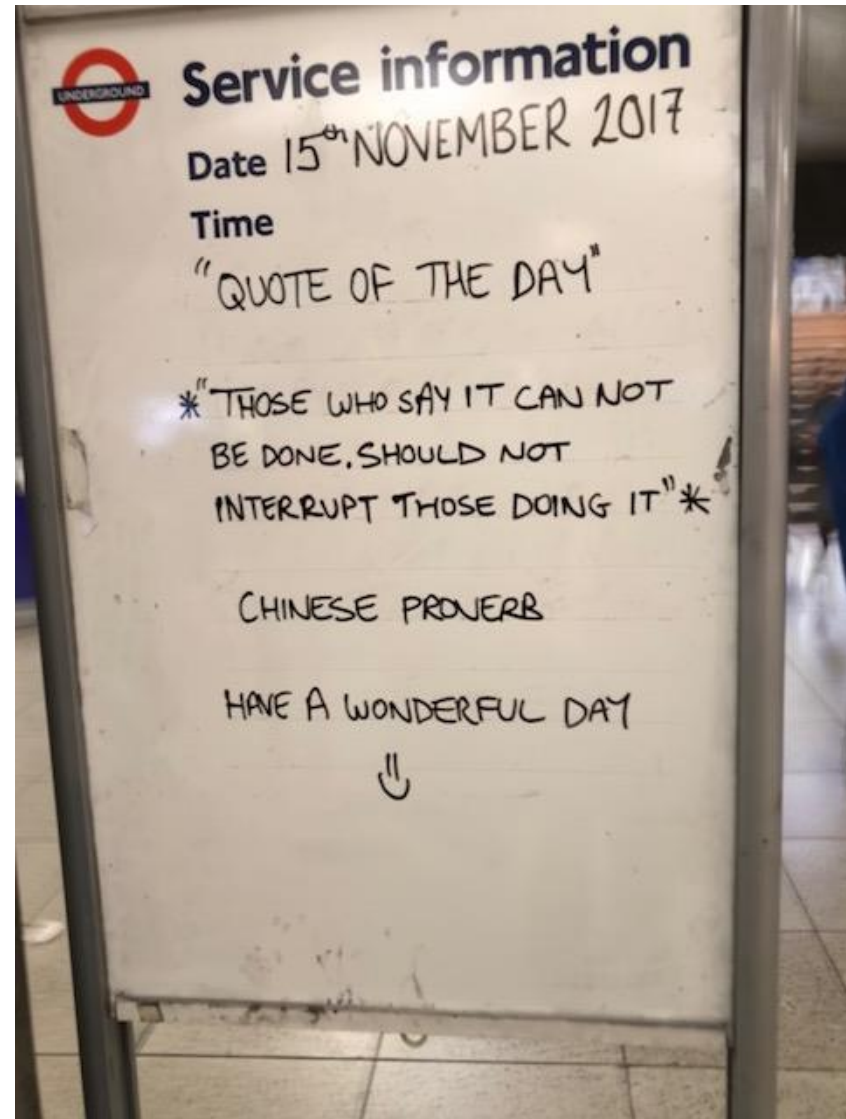 UNDERGROUND
Service information
Date 15th NOVEMBER 2017
Time
"QUOTE OF THE DAY"
*"THOSE WHO SAY IT CAN NOT
BE DONE. SHOULD NOT
INTERRUPT THOSE DOING IT"*
CHINESE PROVERB
HAVE A WONDERFUL DAY